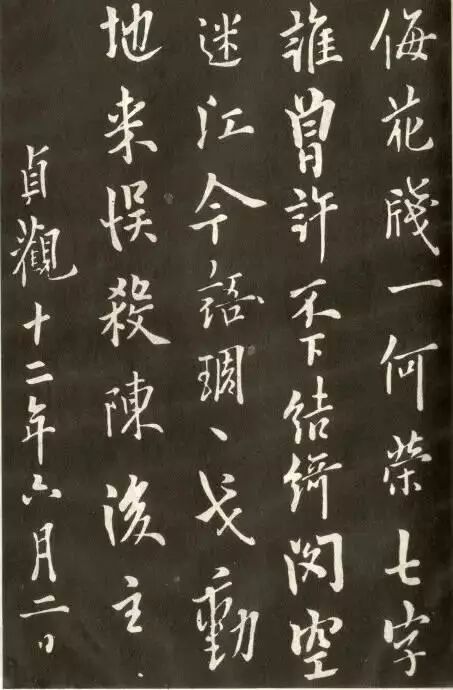 侮花牋一何榮七字
誰曾許不下結綺閣空
迷江令語琱、戈動
地来悮殺陳後主
貞觀十二年六月二日